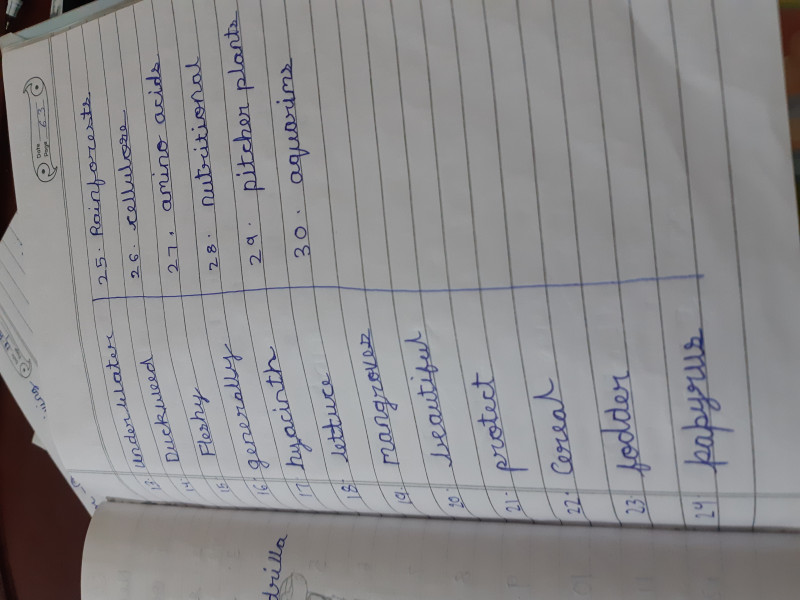 Date
Page 63
Underwater
13. Duckweed
14. Fleshy
15. generally
16. hyacinth
17. lettuce
18. mangroves
19. beautiful
20. protect
21. Cereal
22. fodder
23. papyrus
24.
25. Rainforests
26. cellulose
27. amino acids
28. nutritional
29. pitcher plants
30. aquarims
drilla